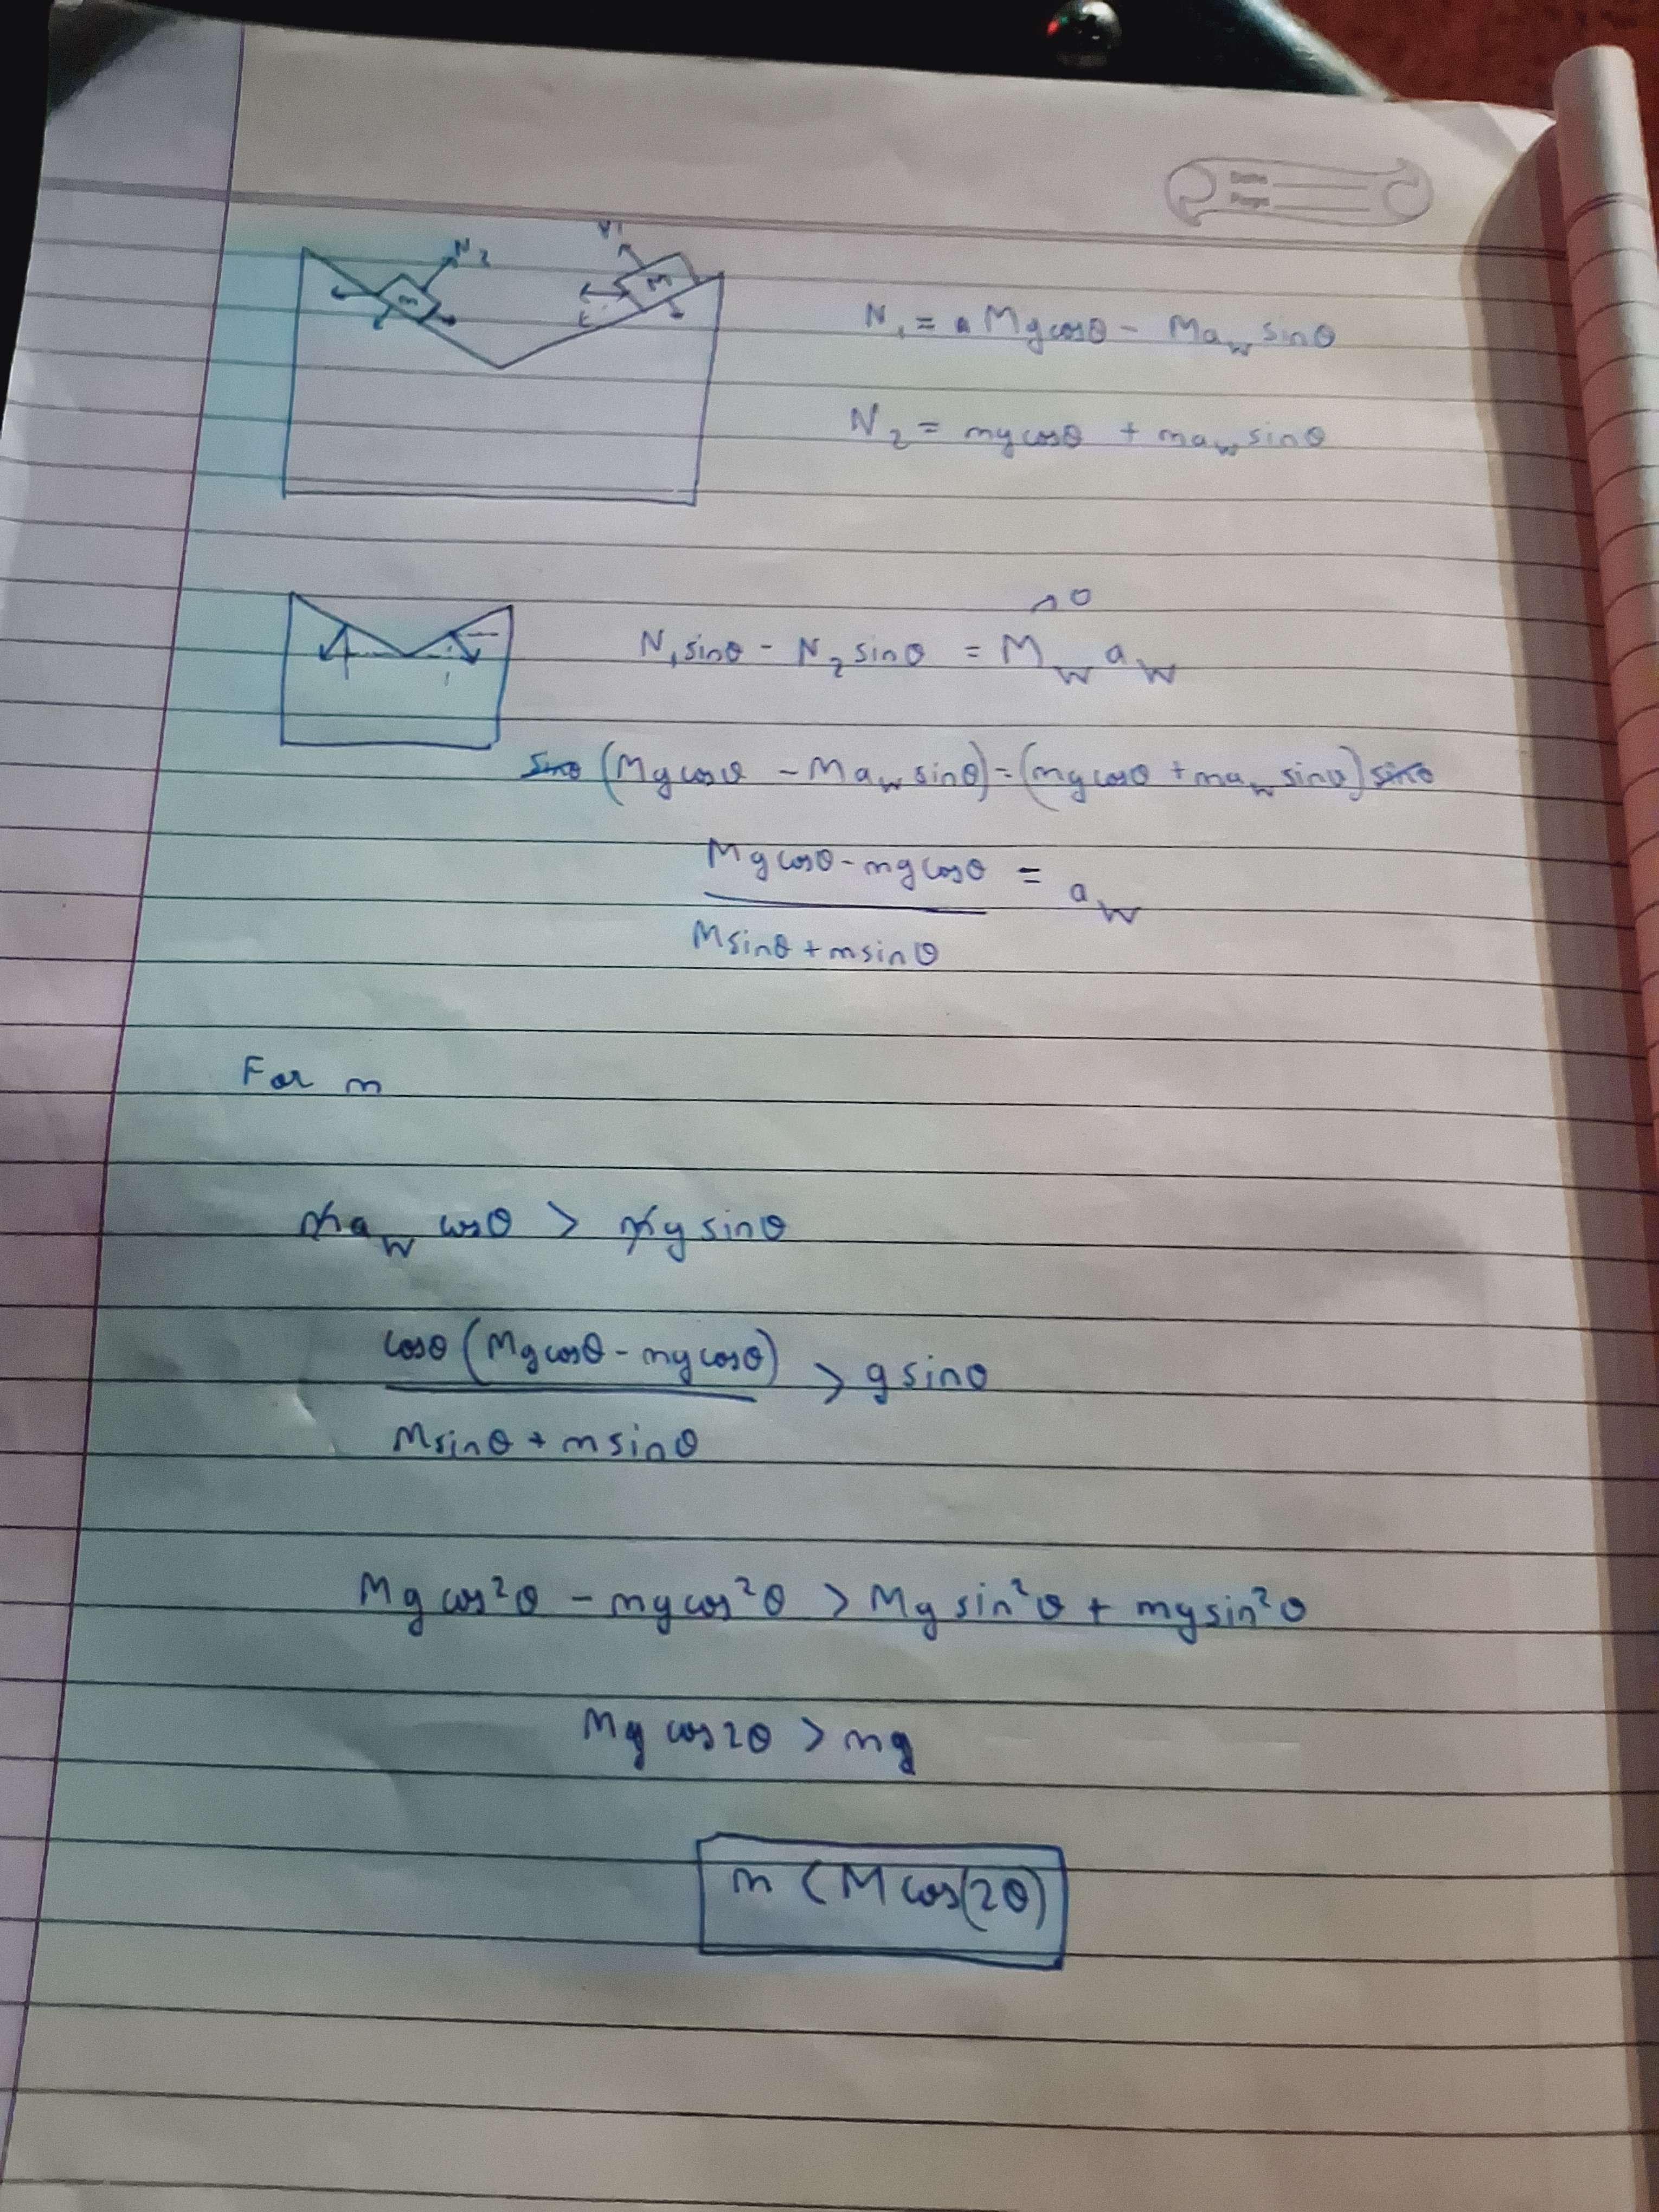 Date
Page
N₂ N₁
m M
N₁ = Mg cosθ - Ma_w sinθ
N₂ = mg cosθ + ma_w sinθ
0
N₁ sinθ - N₂ sinθ = M_w a_w
sinθ (Mg cosθ - Ma_w sinθ) = (mg cosθ + ma_w sinθ) sinθ
Mg cosθ - mg cosθ = a_w
M sinθ + m sinθ
For m
ma_w cosθ > mg sinθ
cosθ (Mg cosθ - mg cosθ) > g sinθ
M sinθ + m sinθ
Mg cos²θ - mg cos²θ > Mg sin²θ + mg sin²θ
Mg cos2θ > mg
m < M cos(2θ)